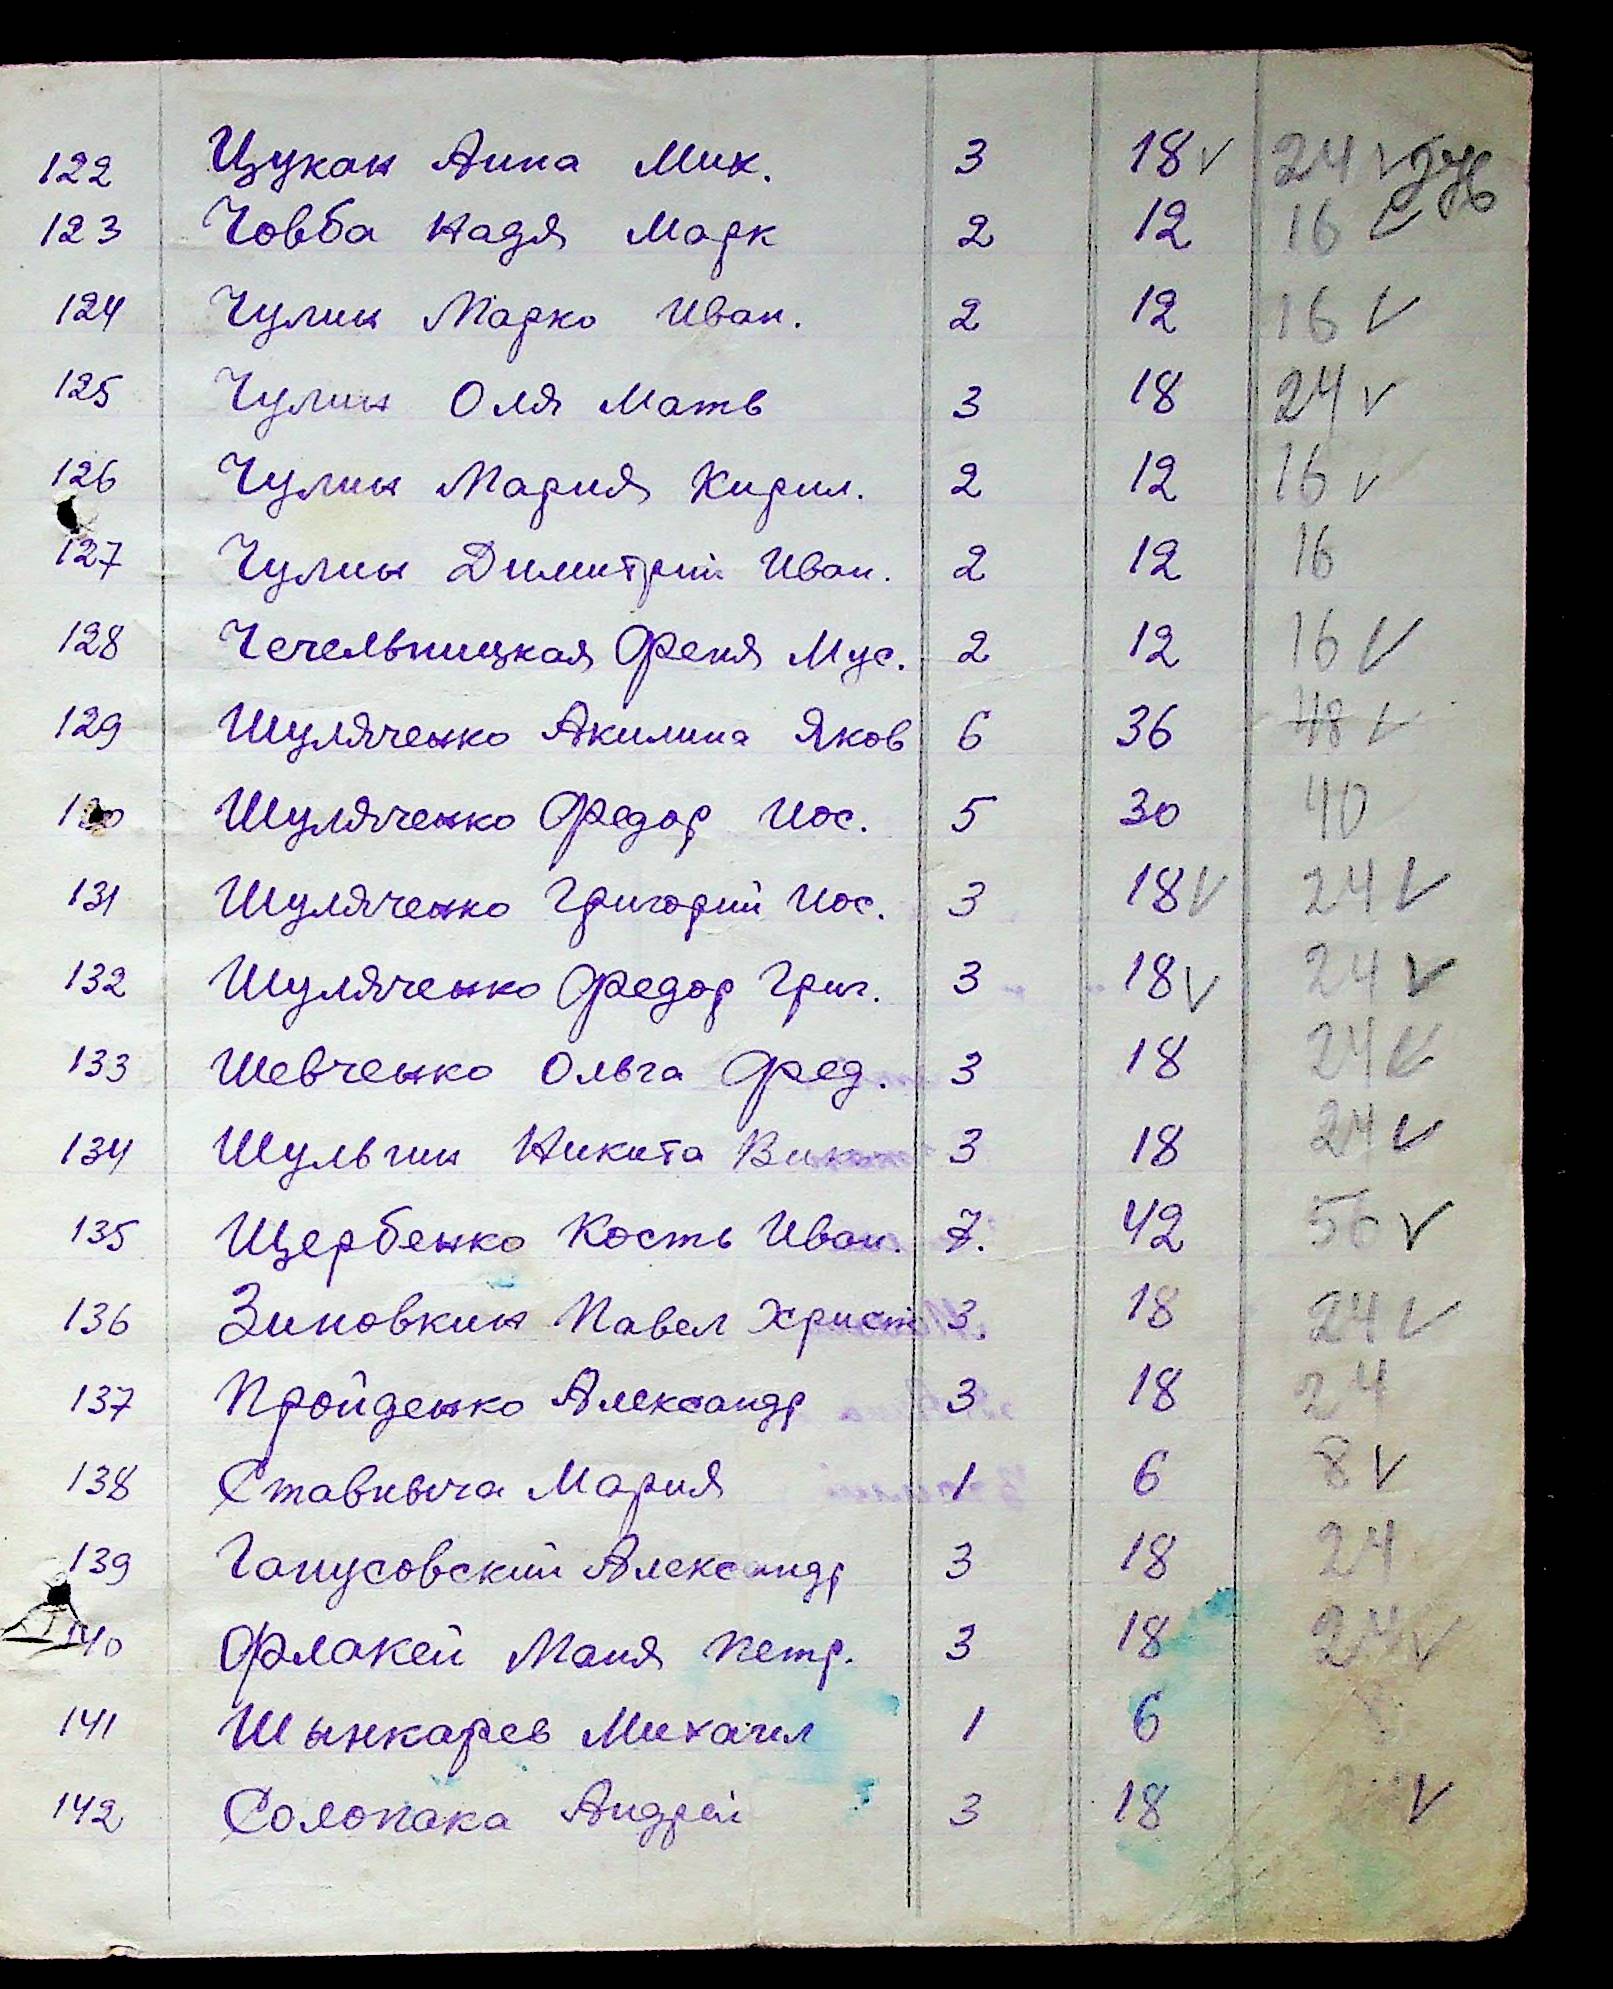 122 Цукан Анна Мих. 3 18 ✓ 24 ✓
123 Човба Надя Марк 2 12 16 ✓
124 Чулин Марко Иван. 2 12 16 ✓
125 Чулин Оля Матв 3 18 24 ✓
126 Чулин Мария Кирил. 2 12 16 ✓
127 Чулин Димитрий Иван. 2 12 16
128 Чечельницкая Феня Мус. 2 12 16 ✓
129 Шуляченко Акилина Яков 6 36 48 ✓
130 Шуляченко Федор Иос. 5 30 40
131 Шуляченко Григорий Иос. 3 18 ✓ 24 ✓
132 Шуляченко Федор Григ. 3 18 ✓ 24 ✓
133 Шевченко Ольга Фед. 3 18 24 ✓
134 Шульгин Никита 3 18 24 ✓
135 Щербенко Кость Иван. 7. 42 56 ✓
136 Зиновкин Павел Христ 3. 18 24 ✓
137 Пройденко Александр 3 18 24
138 Ставныча Мария 1 6 8 ✓
139 Гапусовский Александр 3 18 24
140 Флакей Маня Петр. 3 18 24 ✓
141 Шынкарев Михаил 1 6 8
142 Солопака Андрей 3 18 ✓